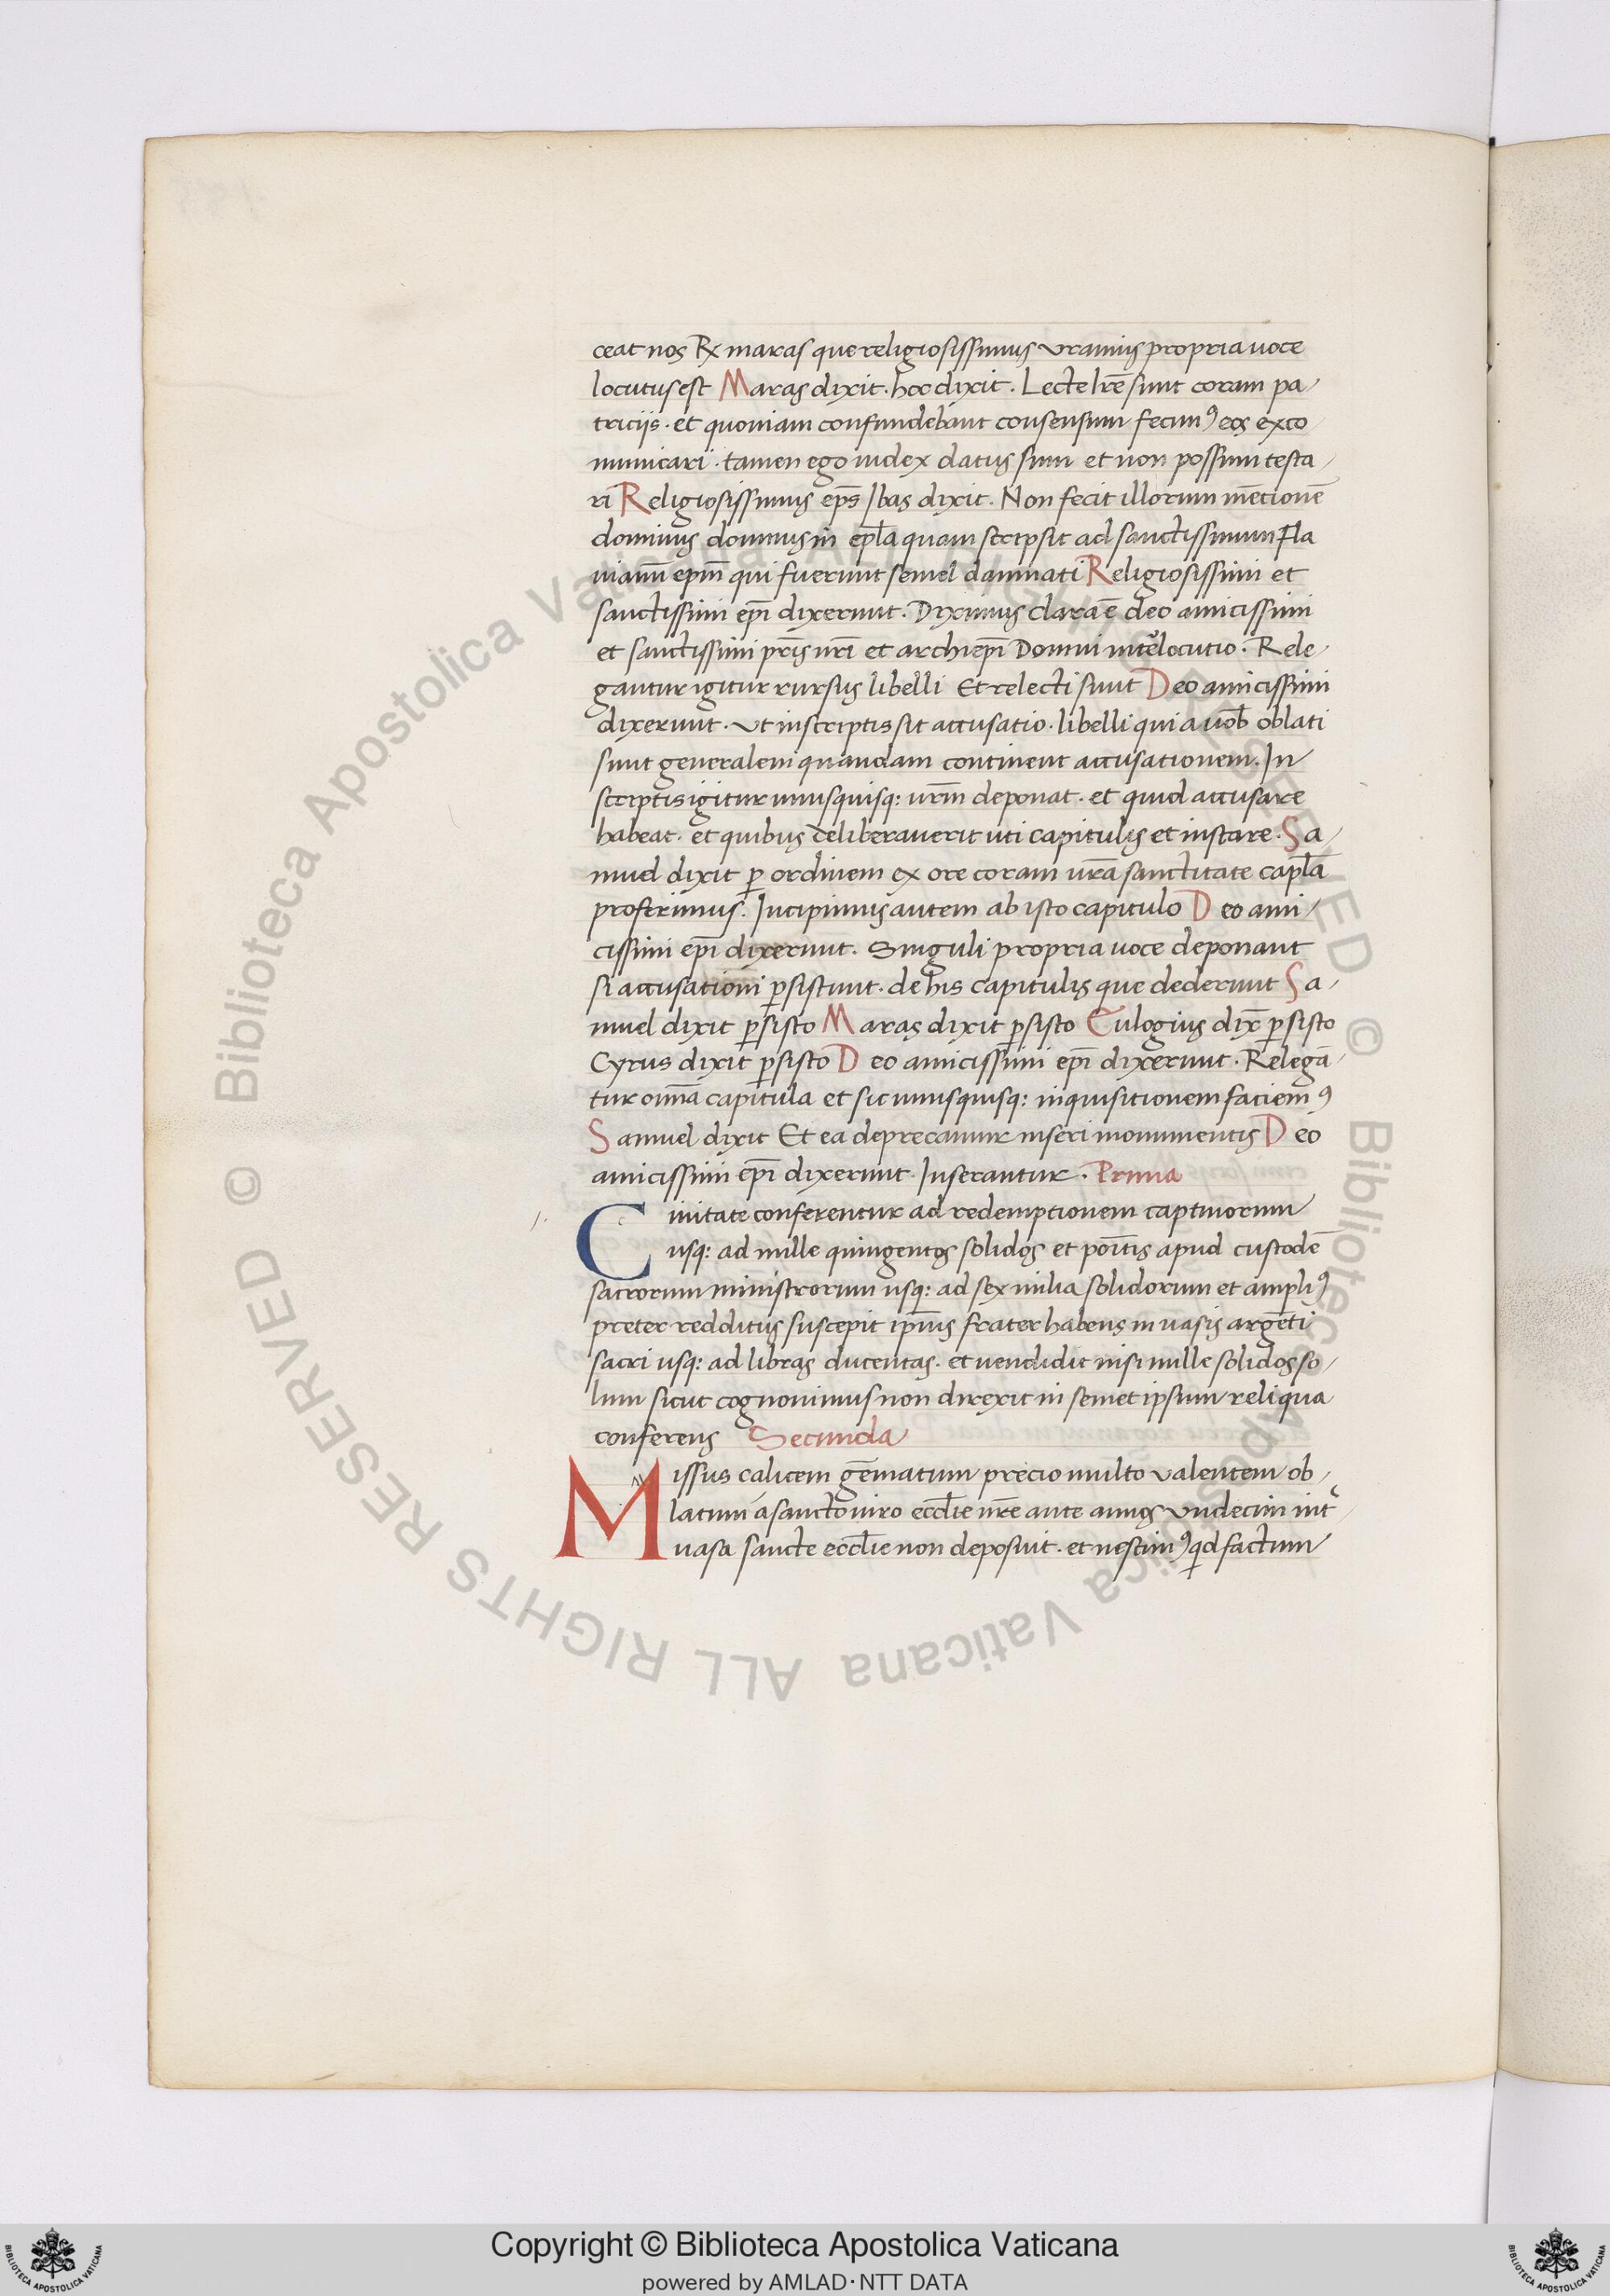 ceat nos Rx maras que religiosissimus vranius propria uoce
locutus est Maras dixit. hoc dixit. Lecte lr̄e sunt coram pa/
tricijs. et quoniam confundebant consensum fecimꝰ eos exco
municari. tamen ego iudex datus sum et non possum testa/
ri Religiosissimus ep̄s Ibas dixit. Non fecit illorum mētionē
dominus domnus in ep̄la quam scripsit ad sanctissimum Fla
uianū ep̄m qui fuerunt semel damnati Religiosissimi et
sanctissimi ep̄i dixerunt. Diximus clara ē deo amicissimi
et sanctissimi pr̄is nr̄i et archiep̄i Domni inte᷑locutio. Rele/
gantur igitur rursus libelli Et relecti sunt Deo amicissimi
dixerunt. Vt inscriptis sit accusatio. libelli qui a uob̄ oblati
sunt generalem quandam continent accusationem. In
scriptis igitur unusquisq: ur̄m deponat. et quid accusare
habeat. et quibus deliberauerit uti capitulis et instare. Sa/
muel dixit ꝑ ordinem ex ore coram ur̄a sanctitate capl̄a
proferimus. Incipimus autem ab isto capitulo Deo ami/
cissimi ep̄i dixerunt. Singuli propria uoce deponant
si accusationi ꝑsistunt. de his capitulis que dederunt Sa/
muel dixit ꝑsisto Maras dixit ꝑsisto Eulogius dix̄ ꝑsisto
Cyrus dixit ꝑsisto Deo amicissimi ep̄i dixerunt. Relegā/
tur omn̄a capitula et sic unusquisq: inquisitionem faciemꝰ
Samuel dixit Et ea deprecamur inseri monumentis Deo
amicissimi ep̄i dixerunt. Inserantur. Prima
Ciuitate conferentur ad redemptionem captiuorum
usq: ad mille quingentos solidos et poītis apud custodē
sacrorum ministrorum usq: ad sex milia solidorum et ampliꝰ
preter redditus suscepit ip̄ius frater habens in uasis argēti
sacri usq: ad libras ducentas. et uendidit nisi mille solidos so/
lum sicut cognouimus non direxit in semet ipsum reliqua
conferens Secunda
Missus calicem gēmatum precio multo valentem ob/
latum a sancto uiro eccl̄ie nr̄e ante annos vndecim int᷑
uasa sancte eccl̄ie non deposuit. et nescimꝰ qd factum
Copyright © Biblioteca Apostolica Vaticana
powered by AMLAD·NTT DATA
© Biblioteca Apostolica Vaticana ALL RIGHTS RESERVED © Biblioteca Apostolica Vaticana ALL RIGHTS RESERVED